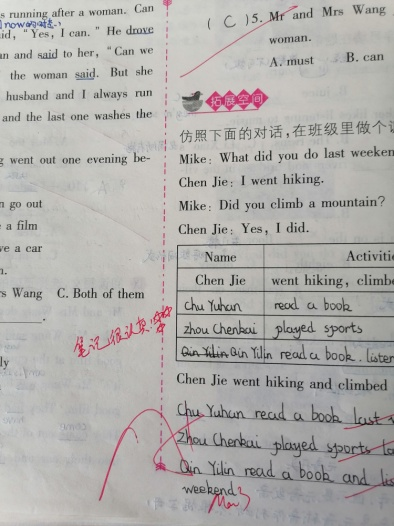 s running after a woman. Can
aid, "Yes, I can." He drove
an and said to her, "Can we
the woman said. But she
husband and I always run
and the last one washes the
g went out one evening be-
n go out
e a film
ve a car
n.
rs Wang C. Both of them
笔记很认真!
( C )5. Mr and Mrs Wang
woman.
A. must B. can
拓展空间
仿照下面的对话,在班级里做个
Mike: What did you do last weeken
Chen Jie: I went hiking.
Mike: Did you climb a mountain?
Chen Jie: Yes, I did.
Name Activiti
Chen Jie went hiking, climbe
Chu Yuhan read a book
Zhou Chenkai played sports
Qin Yilin Qin Yilin read a book. listen
Chen Jie went hiking and climbed
Chu Yuhan read a book last
Zhou Chenkai played sports la
Qin Yilin read a book and lis
weekend